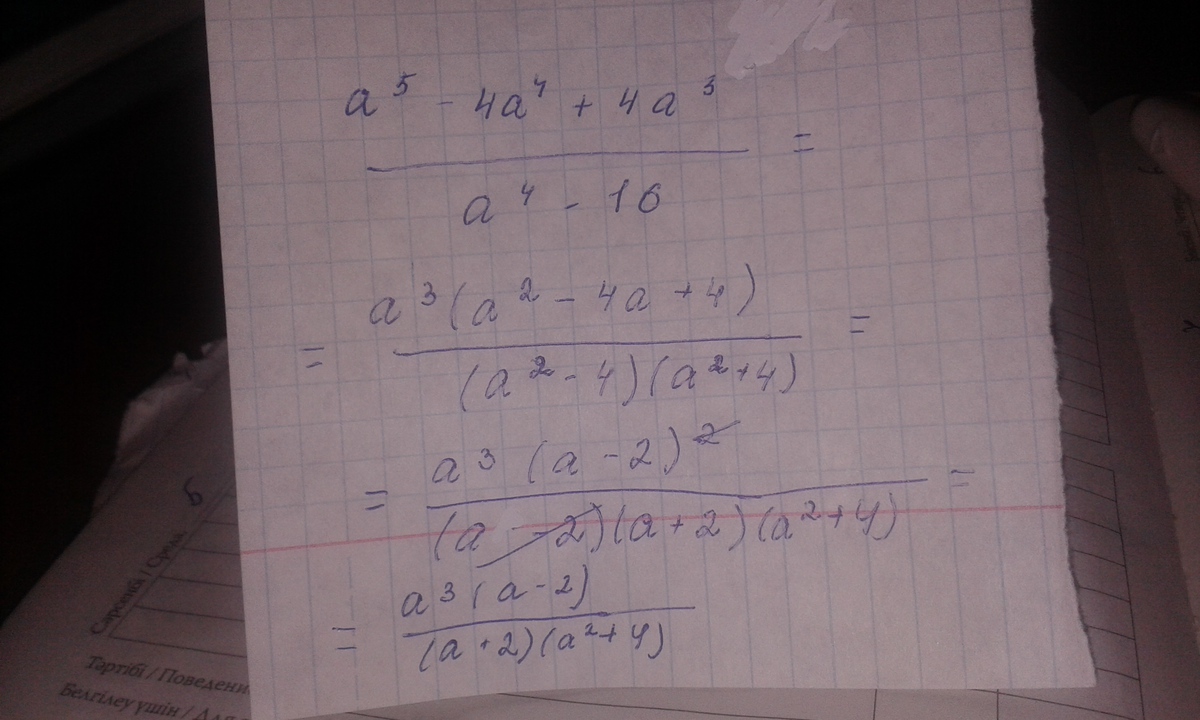 a⁵ - 4a⁴ + 4a³
a⁴ - 16
=
= a³(a² - 4a + 4)
(a² - 4)(a² + 4)
=
= a³(a - 2)²
(a - 2)(a + 2)(a² + 4)
=
= a³(a - 2)
(a + 2)(a² + 4)
б
Сәрсенбі / Среда
Тәртібі / Поведени
Белгілеу үшін / Для